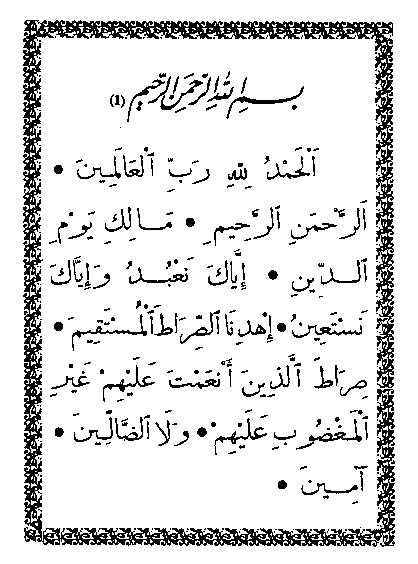 بسم الله الرحمن الرحيم (1)
اَلْحَمْدُ لِلَّهِ رَبِّ اَلْعَالَمِينَ •
اَلرَّحْمَنِ اَلرَّحِيمِ • مَالِكِ يَوْمِ
اَلدِّينِ • إِيَّاكَ نَعْبُدُ وَإِيَّاكَ
نَسْتَعِينُ • إِهْدِنَا اَلصِّرَاطَ اَلْمُسْتَقِيمَ •
صِرَاطَ اَلَّذِينَ أَنْعَمْتَ عَلَيْهِمْ غَيْرِ
اَلْمَغْضُوبِ عَلَيْهِمْ • وَلَا اَلضَّالِّينَ •
آمِينَ •